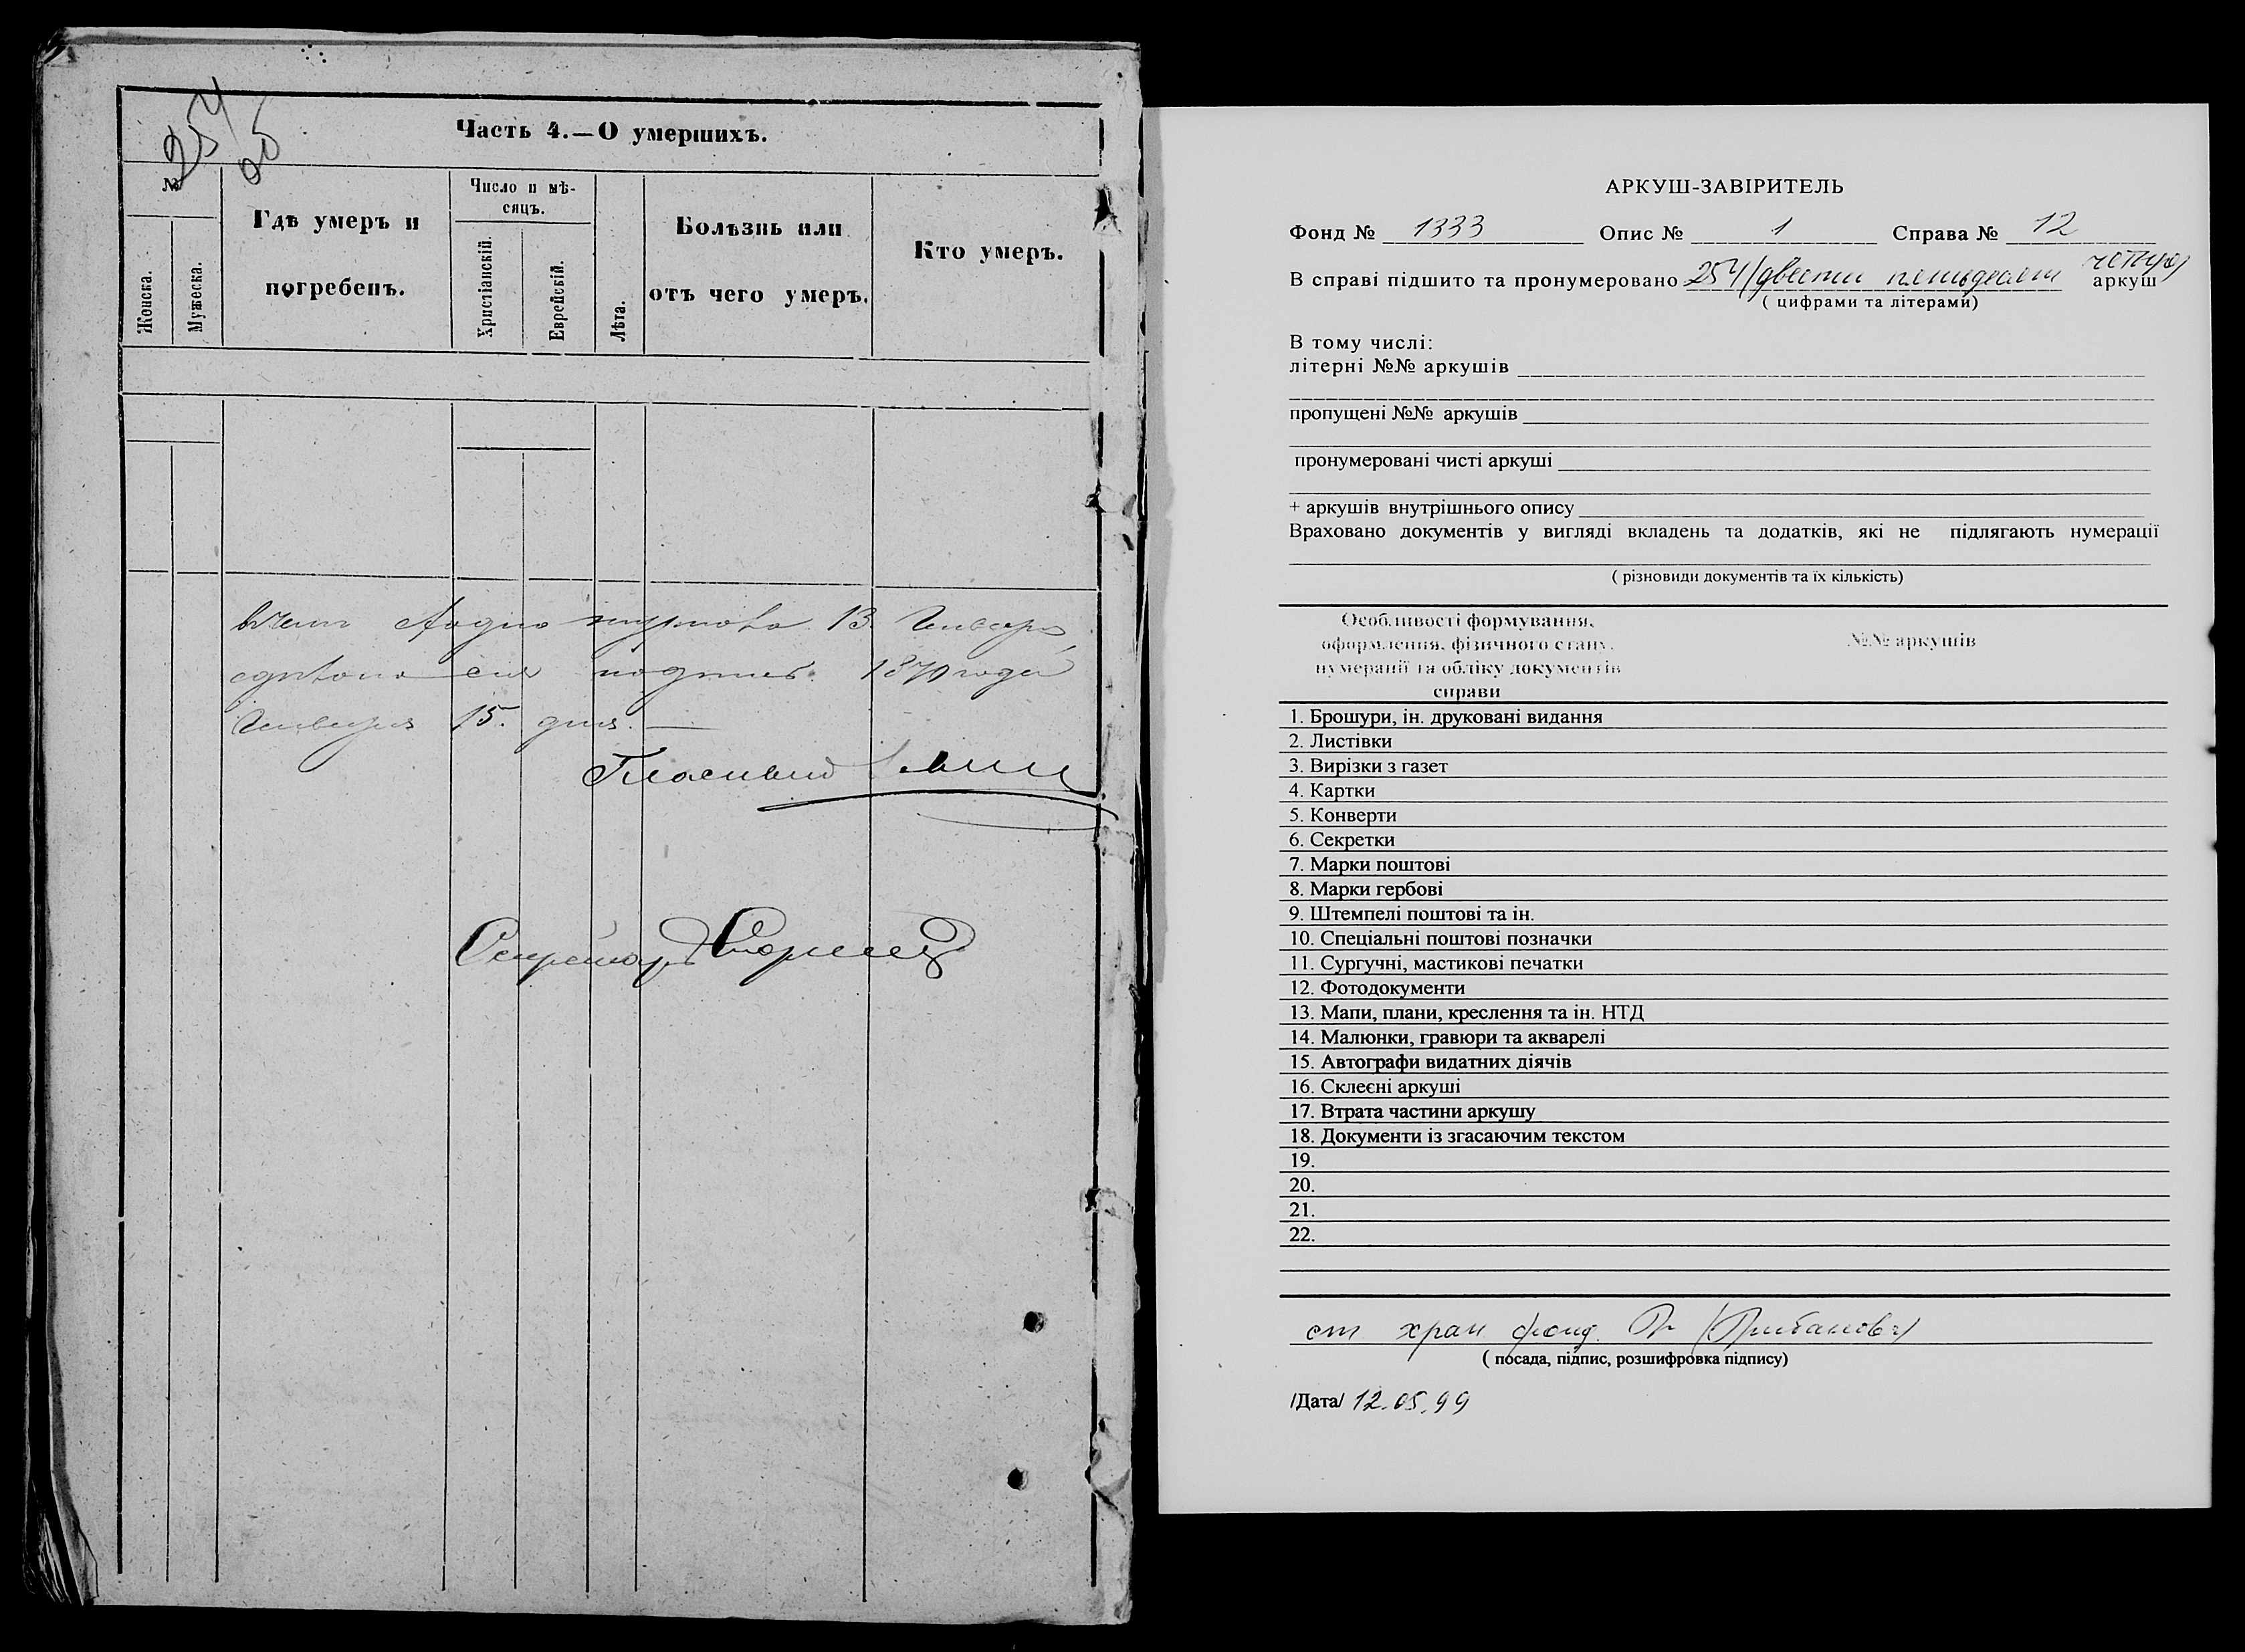 254
Часть 4.—О умершихъ.
№
Женска.
Мужеска.
Гдѣ умеръ и
погребенъ.
Число и мѣ-
сяцъ.
Христіанскій.
Еврейскій.
Лѣта.
Болѣзнь или
отъ чего умеръ.
Кто умеръ.
13. Января
1870 года
Января 15. дня.
Гласный
Секретарь
АРКУШ-ЗАВІРИТЕЛЬ
Фонд № 1333 Опис № 1 Справа № 12
В справі підшито та пронумеровано 254 (двести пятьдесят четыре) аркуш
( цифрами та літерами)
В тому числі:
літерні №№ аркушів
пропущені №№ аркушів
пронумеровані чисті аркуші
+ аркушів внутрішнього опису
Враховано документів у вигляді вкладень та додатків, які не підлягають нумерації
( різновиди документів та їх кількість)
Особливості формування,
оформлення, фізичного стану,
нумерації та обліку документів
справи
№№ аркушів
1. Брошури, ін. друковані видання
2. Листівки
3. Вирізки з газет
4. Картки
5. Конверти
6. Секретки
7. Марки поштові
8. Марки гербові
9. Штемпелі поштові та ін.
10. Спеціальні поштові позначки
11. Сургучні, мастикові печатки
12. Фотодокументи
13. Мапи, плани, креслення та ін. НТД
14. Малюнки, гравюри та акварелі
15. Автографи видатних діячів
16. Склеєні аркуші
17. Втрата частини аркушу
18. Документи із згасаючим текстом
19.
20.
21.
22.
ст хран фонд.
( посада, підпис, розшифровка підпису)
/Дата/ 12.05.99